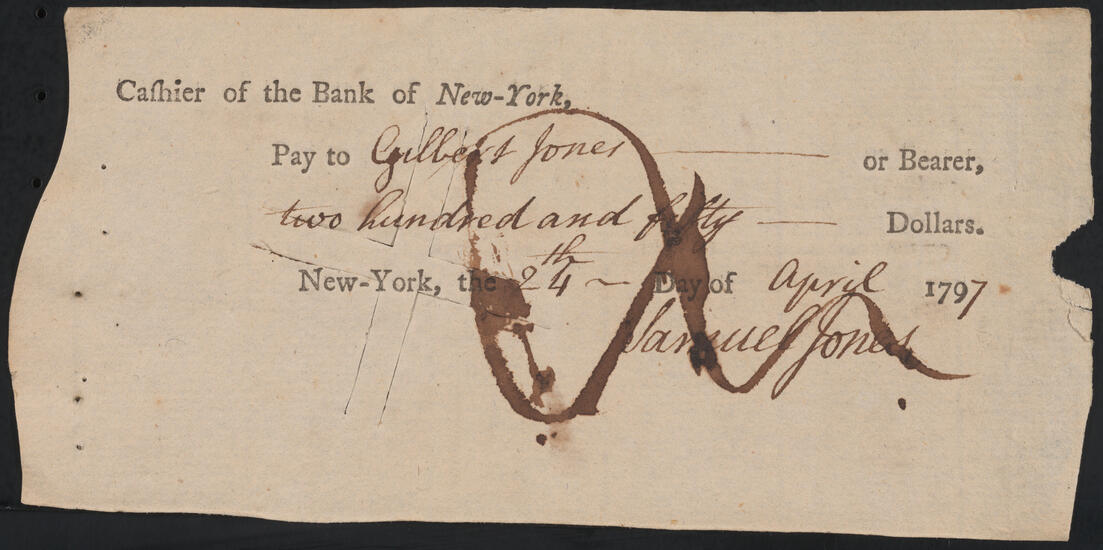 Caſhier of the Bank of New-York,
Pay to Gilbert Jones — or Bearer,
two hundred and fifty — Dollars.
New-York, the 24th ~ Day of April 1797
Samuel Jones